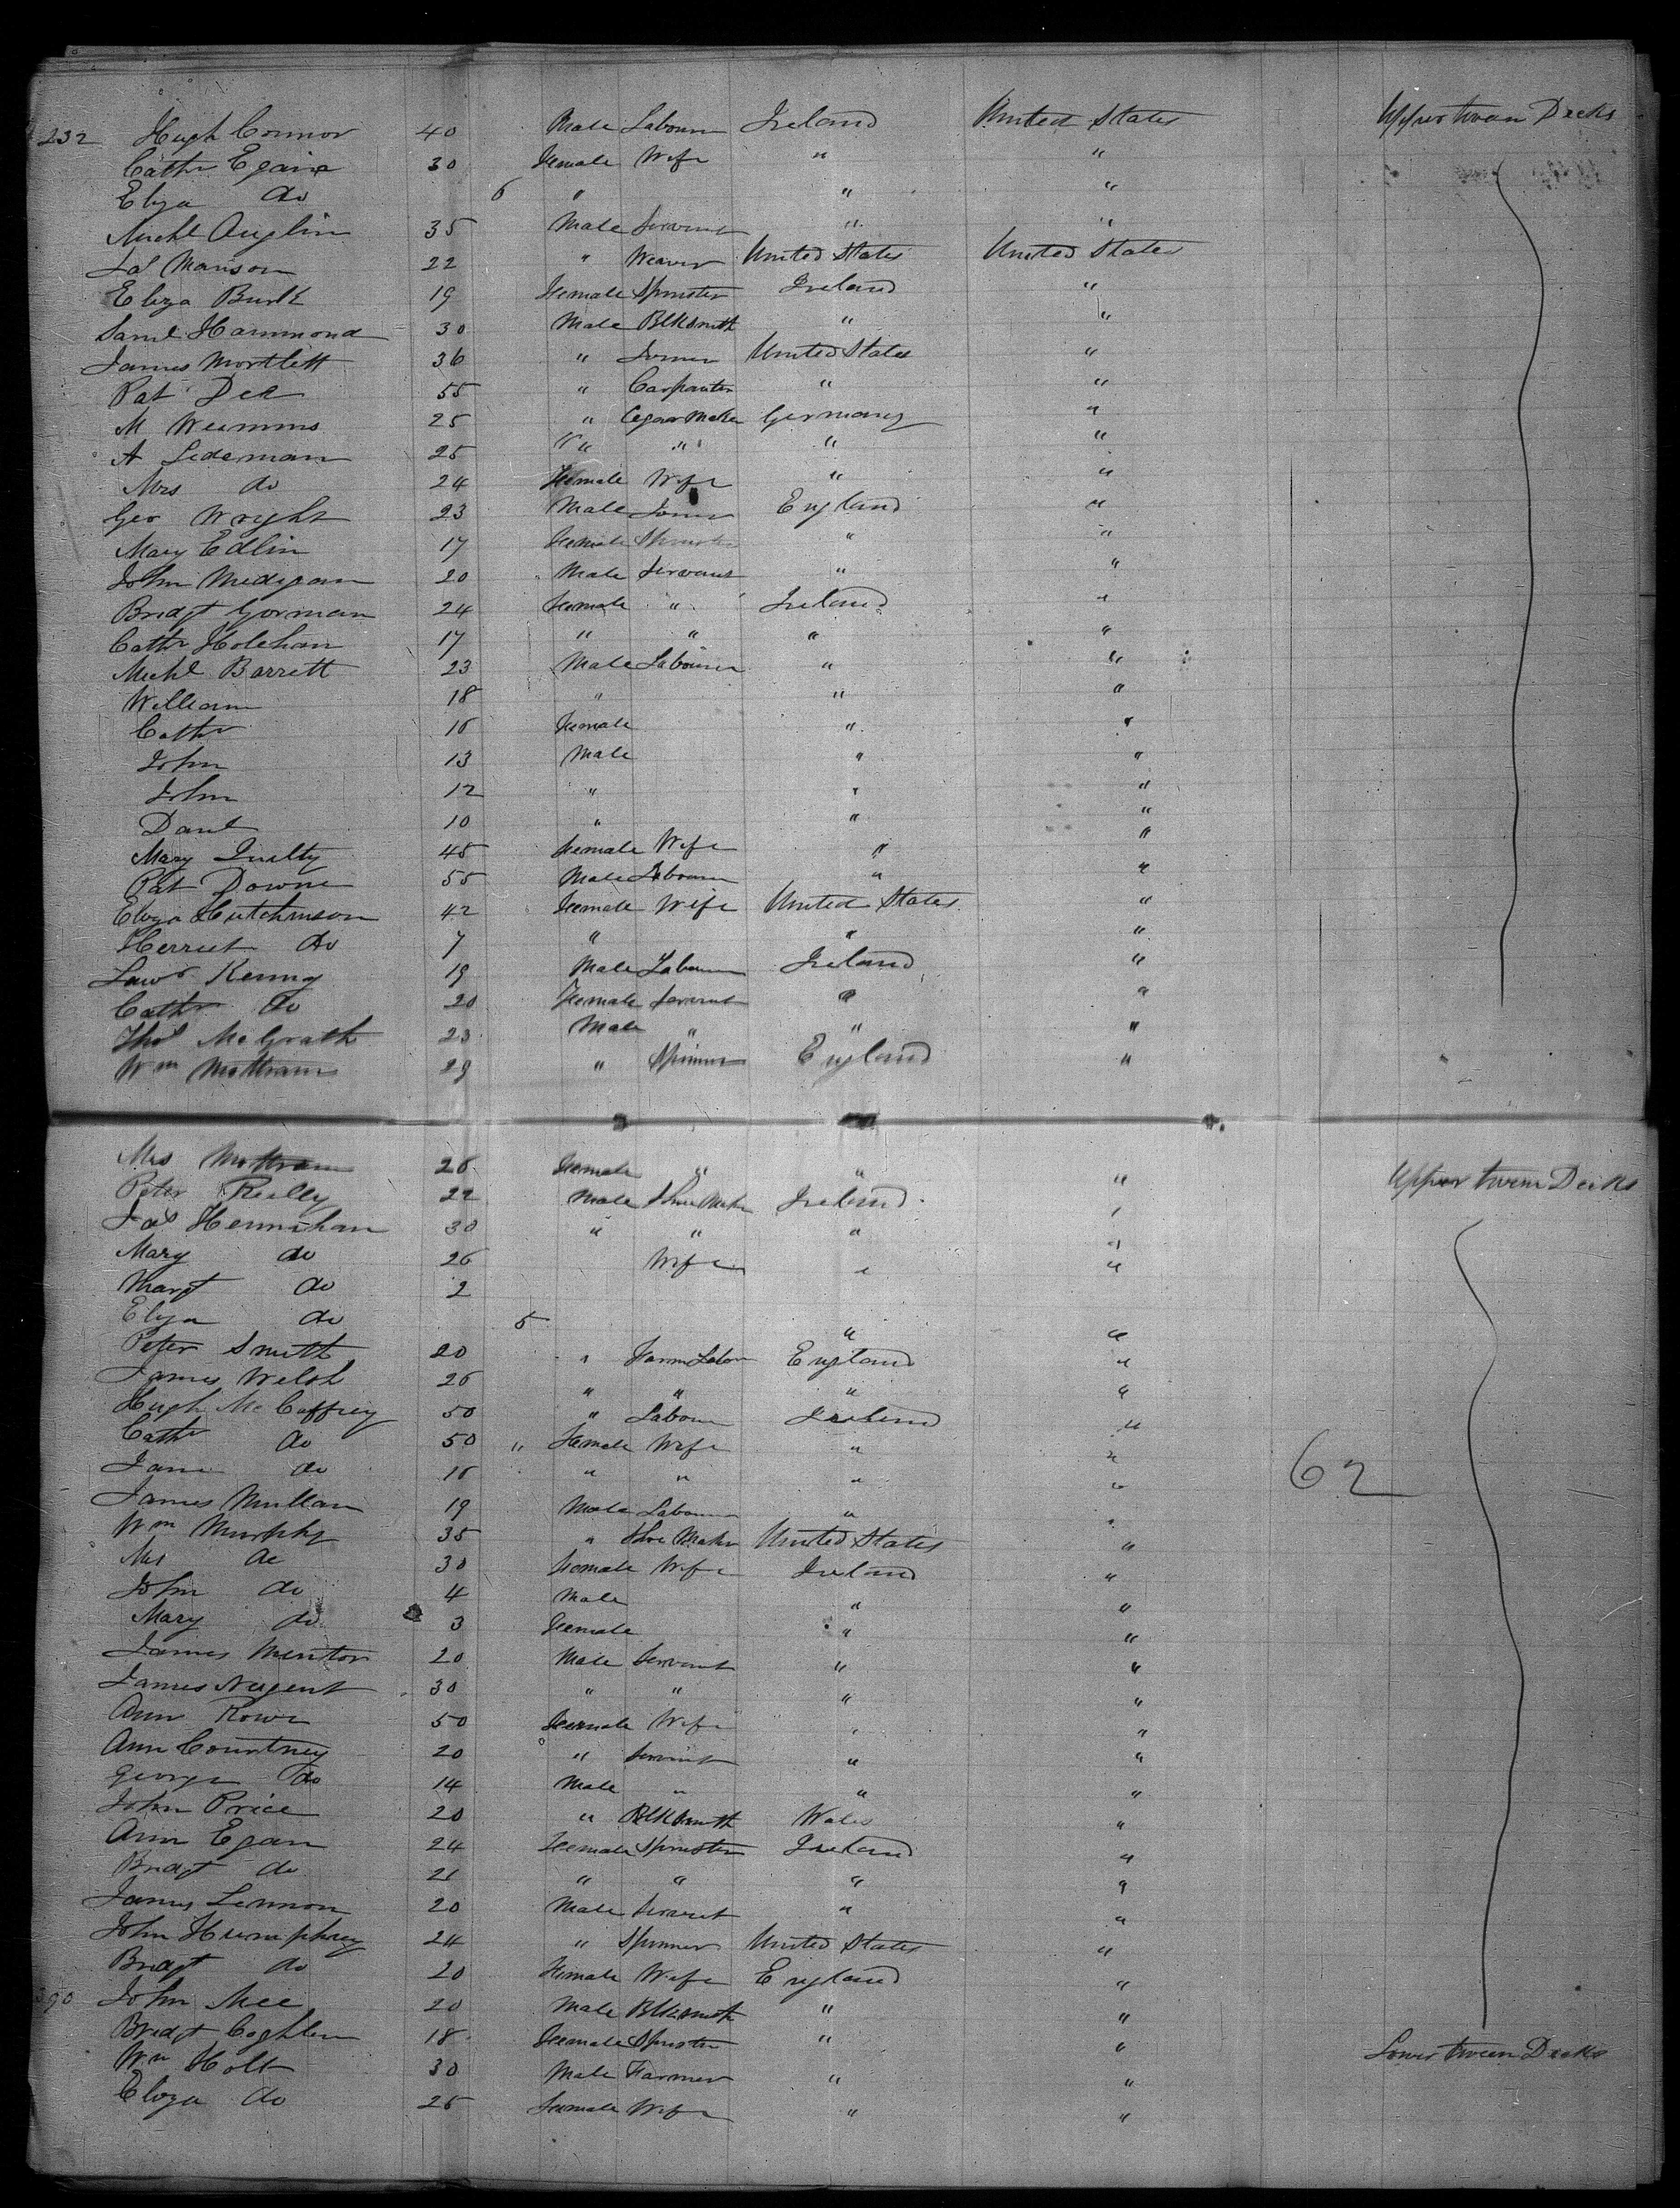 232 Hugh Connor 40 Male Labourer Ireland United States Upper tween Decks
Cathr Egan 30 Female Wife " "
Eliza do 6 " " "
Michl Anglin 35 Male Servant " "
Jas Manson 22 " Weaver United States United States
Eliza Burk 19 Female Spinster Ireland "
Saml Hammond 30 Male Blksmith " "
James Mortlett 36 " Joiner United States "
Pat Dea 55 " Carpenter " "
M Weamms 25 " Cegar Maker Germany "
A Ledeman 25 " " " "
Mrs do 24 Female Wife " "
Geo Wright 23 Male Joiner England "
Mary Edlin 17 Female Spinster " "
John Medigan 20 Male Servant " "
Bridgt Gorman 24 Female " Ireland "
Cathr Holehan 17 " " " "
Michl Barrett 23 Male Labourer " "
William 18 " " "
Cathr 16 Female " "
John 13 Male " "
John 12 " " "
Danl 10 " " "
Mary Quilty 45 Female Wife " "
Pat Downe 55 Male Labourer " "
Eliza Hutchinson 42 Female Wife United States "
Herriet do 7 " " "
Lawr Kenny 19 Male Labourer Ireland "
Cathr do 20 Female Servant " "
Thos McGrath 23 Male " " "
Wm Mottram 29 " Spinner England "
Mrs Mottram 26 Female " " " Upper tween Decks
Peter Reilly 22 Male Shoe Maker Ireland "
Jas Hennihan 30 " " " "
Mary do 26 Wife " "
Margt do 2
Eliza do 5 " "
Peter Smith 20 " Farm Labor England "
James Welsh 26 " " " "
Hugh McCaffrey 50 " Labourer Ireland "
Cathr do 50 " Female Wife " "
Jane do 16 " " " " 62
James Mullan 19 Male Labourer " "
Wm Murphy 35 " Shoe Maker United States "
Mrs do 30 Female Wife Ireland "
John do 4 Male " "
Mary do 3 Female " "
James Minton 20 Male Servant " "
James Nugent 30 " " " "
Ann Rowe 50 Female Wife " "
Ann Courtney 20 " Servant " "
George do 14 Male " " "
John Price 20 " Blksmith Wales "
Ann Egan 24 Female Spinster Ireland "
Bridgt do 21 " " " "
James Lennon 20 Male Servant " "
John Humphrey 24 " Spinner United States "
Bridgt do 20 Female Wife England "
290 John Mee 20 Male Blksmith " "
Bridgt Coghlen 18 Female Spinster " " Lower tween Decks
Wm Holt 30 Male Farmer " "
Eliza do 25 Female Wife " "